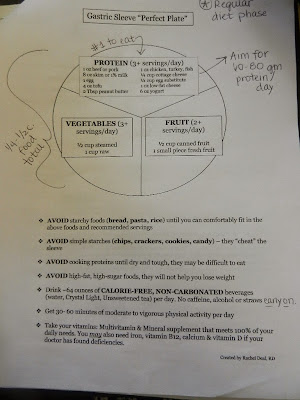 Regular
diet phase
Gastric Sleeve "Perfect Plate"
#1 to eat
PROTEIN (3+ servings/day)
1 oz beef or pork
1 oz chicken, turkey, fish
8 oz skim or 1% milk
¼ cup cottage cheese
1 egg
¼ cup egg substitute
2 oz tofu
1 oz low fat cheese
2 Tbsp peanut butter
6 oz yogurt
Aim for
60-80 gm
protein/
day
¼-½ c
food
total
VEGETABLES (3+
servings/day)
½ cup steamed
1 cup raw
FRUIT (2+
servings/day)
½ cup canned fruit
1 small piece fresh fruit
AVOID starchy foods (bread, pasta, rice) until you can comfortably fit in the
above foods and recommended servings
AVOID simple starches (chips, crackers, cookies, candy) – they "cheat" the
sleeve
AVOID cooking proteins until dry and tough, they may be difficult to eat
AVOID high-fat, high-sugar foods, they will not help you lose weight
Drink ~64 ounces of CALORIE-FREE, NON-CARBONATED beverages
(water, Crystal Light, Unsweetened tea) per day. No caffeine, alcohol or straws early on.
Get 30-60 minutes of moderate to vigorous physical activity per day
Take your vitamins: Multivitamin & Mineral supplement that meets 100% of your
daily needs. You may also need iron, vitamin B12, calcium & vitamin D if your
doctor has found deficiencies.
Created by Rachel Deal, RD